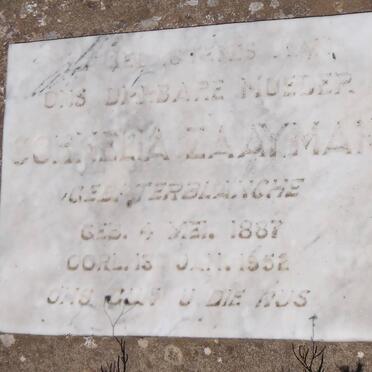 ONS DIERBARE MOEDER
CORNELIA ZAAYMAN
GEB. TERBLANCHE
GEB. 4 MEI. 1887
OORL. 13 JAN. 1952
ONS GUN U DIE RUS